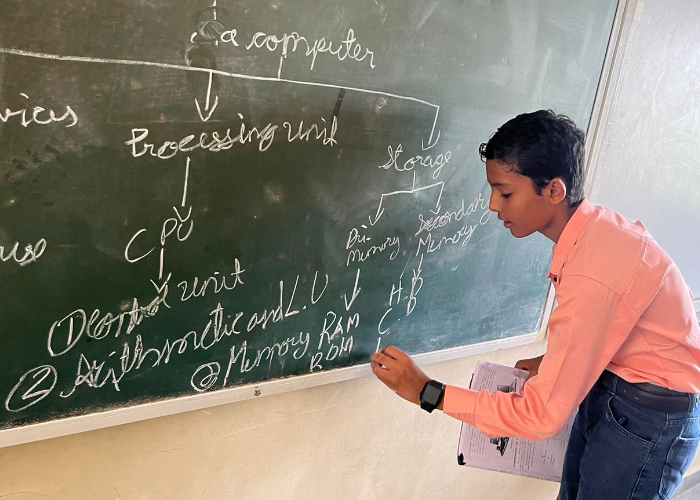 a computer
vices
Processing Unit
Storage
CPU
Pri-
Memory
Secondary
Memory
① Control unit
② Arithmetic and L.U
③ Memory
RAM
ROM
H.D
C.D